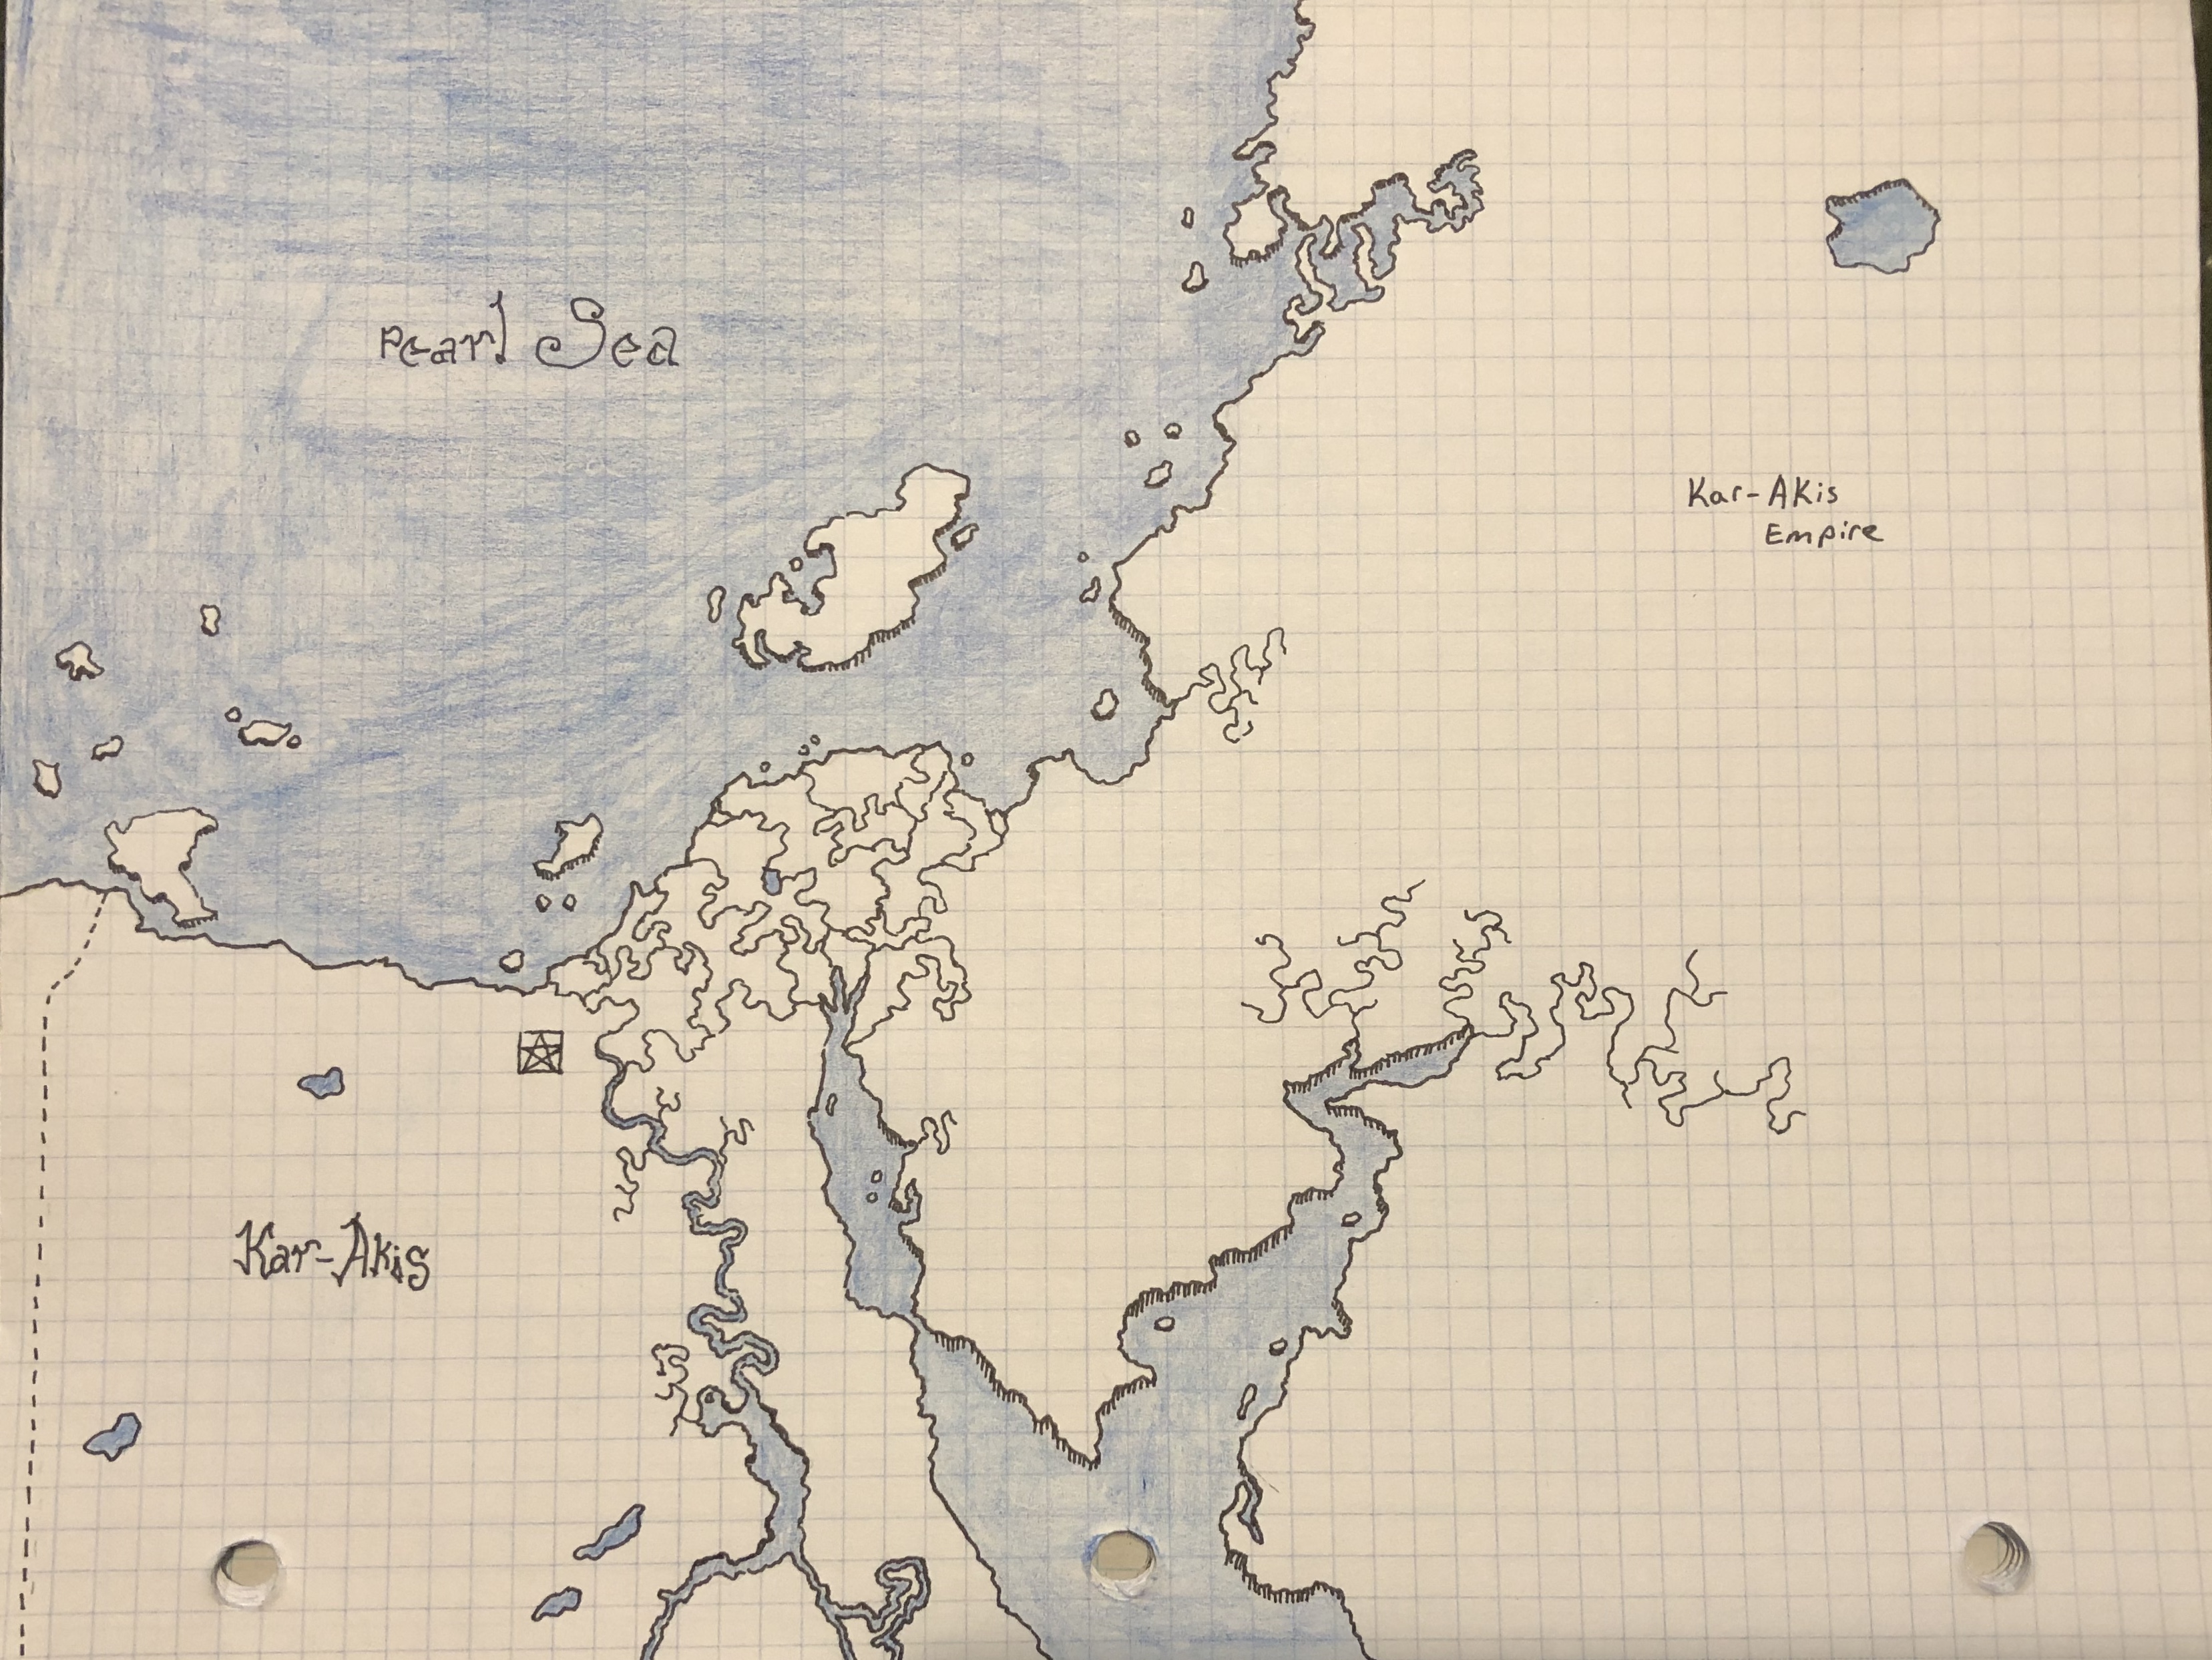 Pearl Sea
Kar-Akis
Empire
Kar-Akis